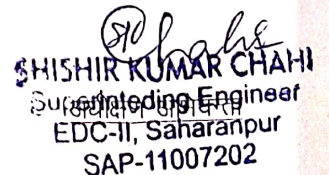 SHISHIR KUMAR CHAHI
Superinteding Engineer
EDC-II, Saharanpur
SAP-11007202